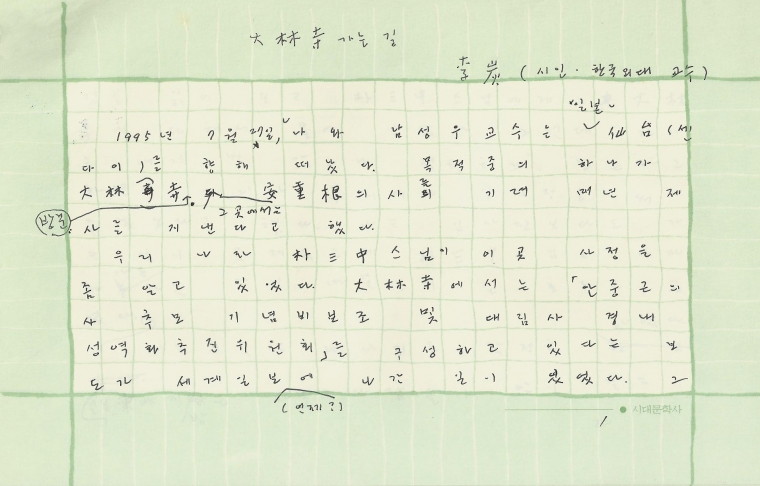 大林寺 가는 길
李炭 (시인·한국외대 교수)
일본
1995년 7월 27일, 나와 남성우교수는 仙台(센
다이)를 향해 떠났다. 목적중의 하나가
大林寺 安重根의 사 기 매년 제
방문
그곳에서는
사를 지낸다고 했다.
우리나라 朴三中스님이 이곳 사정을
좀 알고 있었다. 大林寺에서는 「안중근의
사 추모 기념비보조 및 대림사 경내
성역화추진위원회」를 구성하고 있다는 보
도가 세계일보에 나간 일이 있었다. 그
(언제?)
시대문학사
1